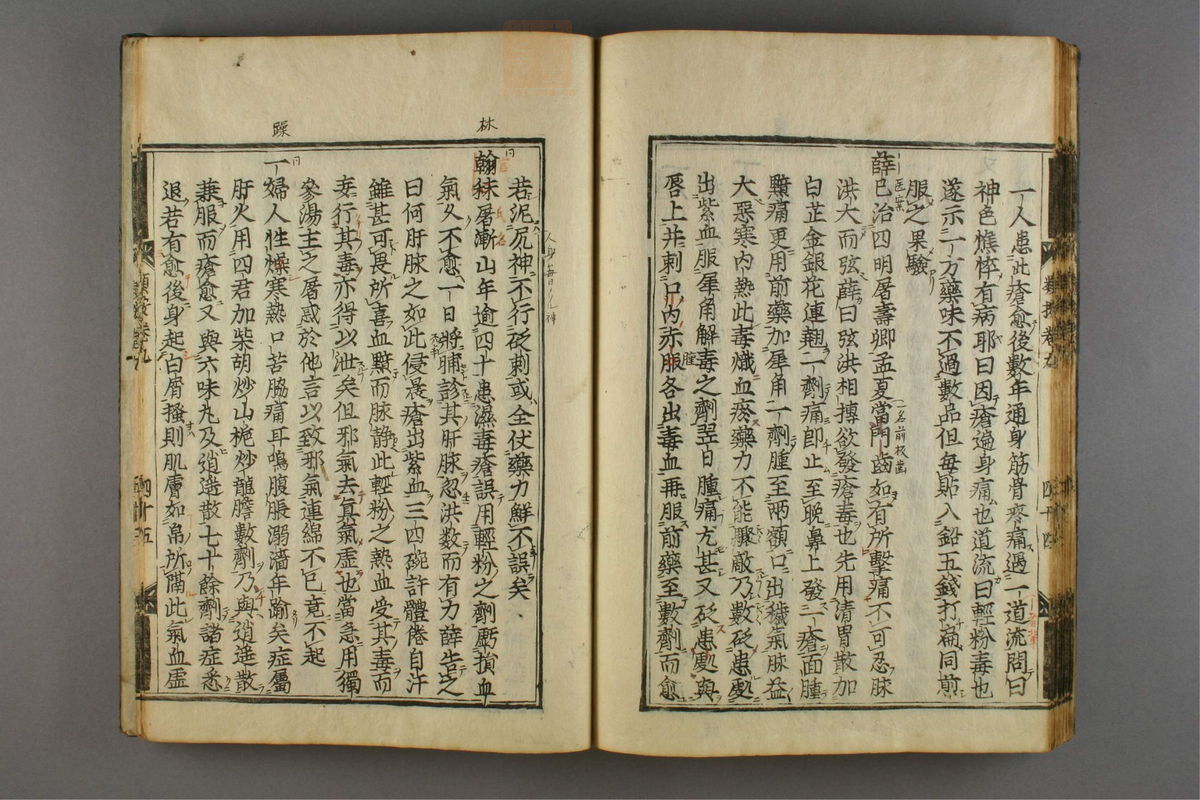 一人患此瘡愈後數年通身筋骨疼痛遇一道流問曰
神色憔悴有病耶曰因瘡遍身痛也道流曰輕粉毒也
遂示一方藥味不過數品但每貼入鉛五錢打扁同煎
服之果驗
薛已治四明屠壽卿孟夏當門齒如有所擊痛不可忍脉
洪大而弦薛曰弦洪相搏欲發瘡毒也先用清胃散加
白芷金銀花連翹二劑痛即止至晚鼻上發二瘡面腫
黯痛更用前藥加犀角一劑腫至兩額口出穢氣脉益
大惡寒内熱此毒熾血瘀藥力不能驟敵乃數砭患處
出紫血服犀角解毒之劑翌日腫痛尤甚又砭患處與
唇上并刺口内赤脈各出毒血再服前藥至數劑而愈
類按卷九
四十四
若泥尻神不行砭刺或全仗藥力鮮不誤矣
翰林屠漸山年逾四十患濕毒瘡誤用輕粉之劑虧損血
氣久不愈一日將晡診其肝脉忽洪數而有力薛告之
曰何肝脉之如此侵晨瘡出紫血三四碗許體倦自汗
雖甚可畏所喜血黯而脉静此輕粉之熱血受其毒而
毒行其毒亦得以泄矣但邪氣去眞氣虛也當急用獨
參湯主之屠惑於他言以致邪氣連綿不已竟不起
一婦人性燥寒熱口苦脇痛耳鳴腹脹溺濇年踰矣症屬
肝火用四君加柴胡炒山梔炒龍膽數劑乃與逍遥散
兼服而瘡愈又與六味丸及逍遥散七十餘劑諸症悉
退若有愈後身起白屑搔則肌膚如帛所隔此氣血虛
類按卷九
四十五
林
躁
医案
一名前板齒
腟